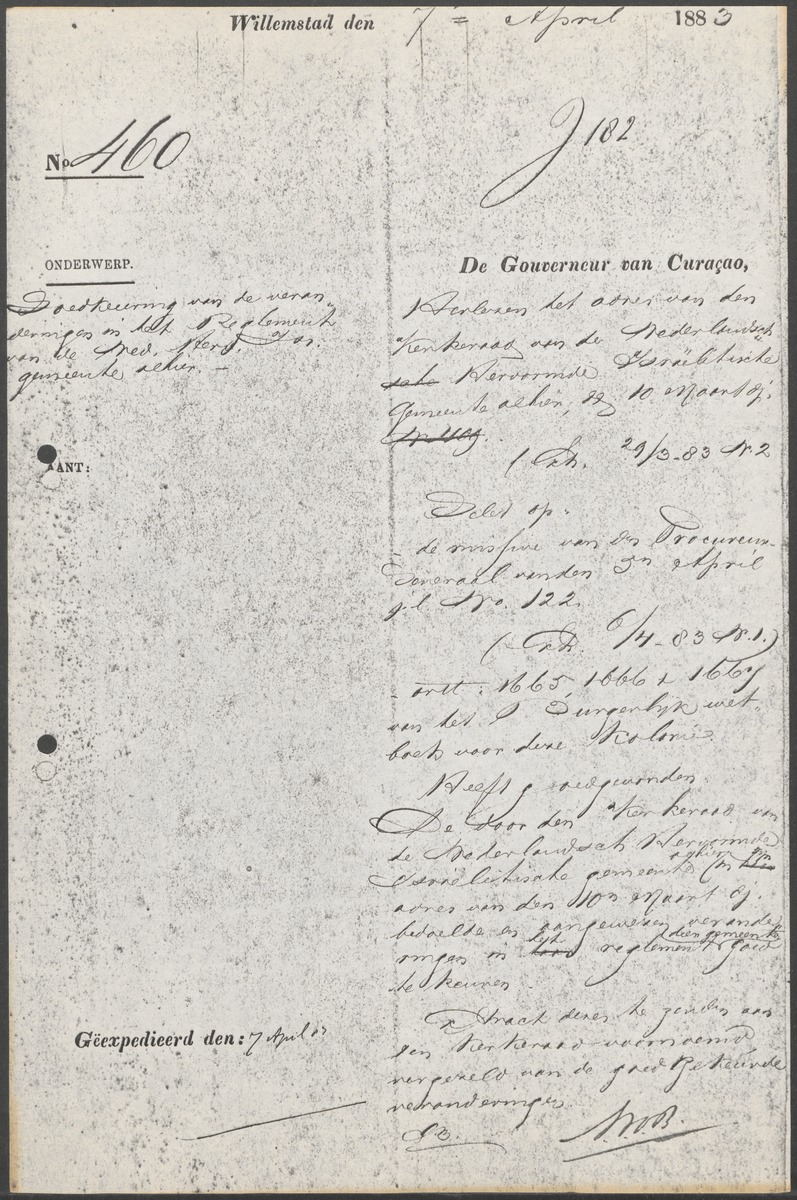 Willemstad den 7 = April 1883
No 460
J 182
ONDERWERP.
Goedkeuring van de veran-
deringen in het Reglement
van de Ned. Herv. Isr.
gemeente alhier. —
AANT:
De Gouverneur van Curaçao,
Herlezen het adres van den
Kerkeraad van de Nederlandsch
Hervormde Israëlitische
Gemeente alhier, dd 10 Maart dj.
( Exh. 29/3-83 No. 2
Gelet op:
de missive van den Procureur-
Generaal van den 5n April
jl No. 122.
( Exh. 6/4-83 No. 1.)
artt: 1665, 1666 & 1667
van het Burgerlijk wet-
boek voor deze Kolonie.
Heeft goedgevonden:
De door den Kerkeraad van
de Nederlandsch Hervormde
Israëlitische gemeente alhier in zijn
adres van den 10n Maart dj.
bedoelde en aangewezen verande-
ringen in het reglement dier gemeente goed
te keuren.
Extract dezes te zenden aan
den Kerkeraad voornoemd
vergezeld van de goedgekeurde
veranderingen.
Gëexpedieerd den: 7 April 83